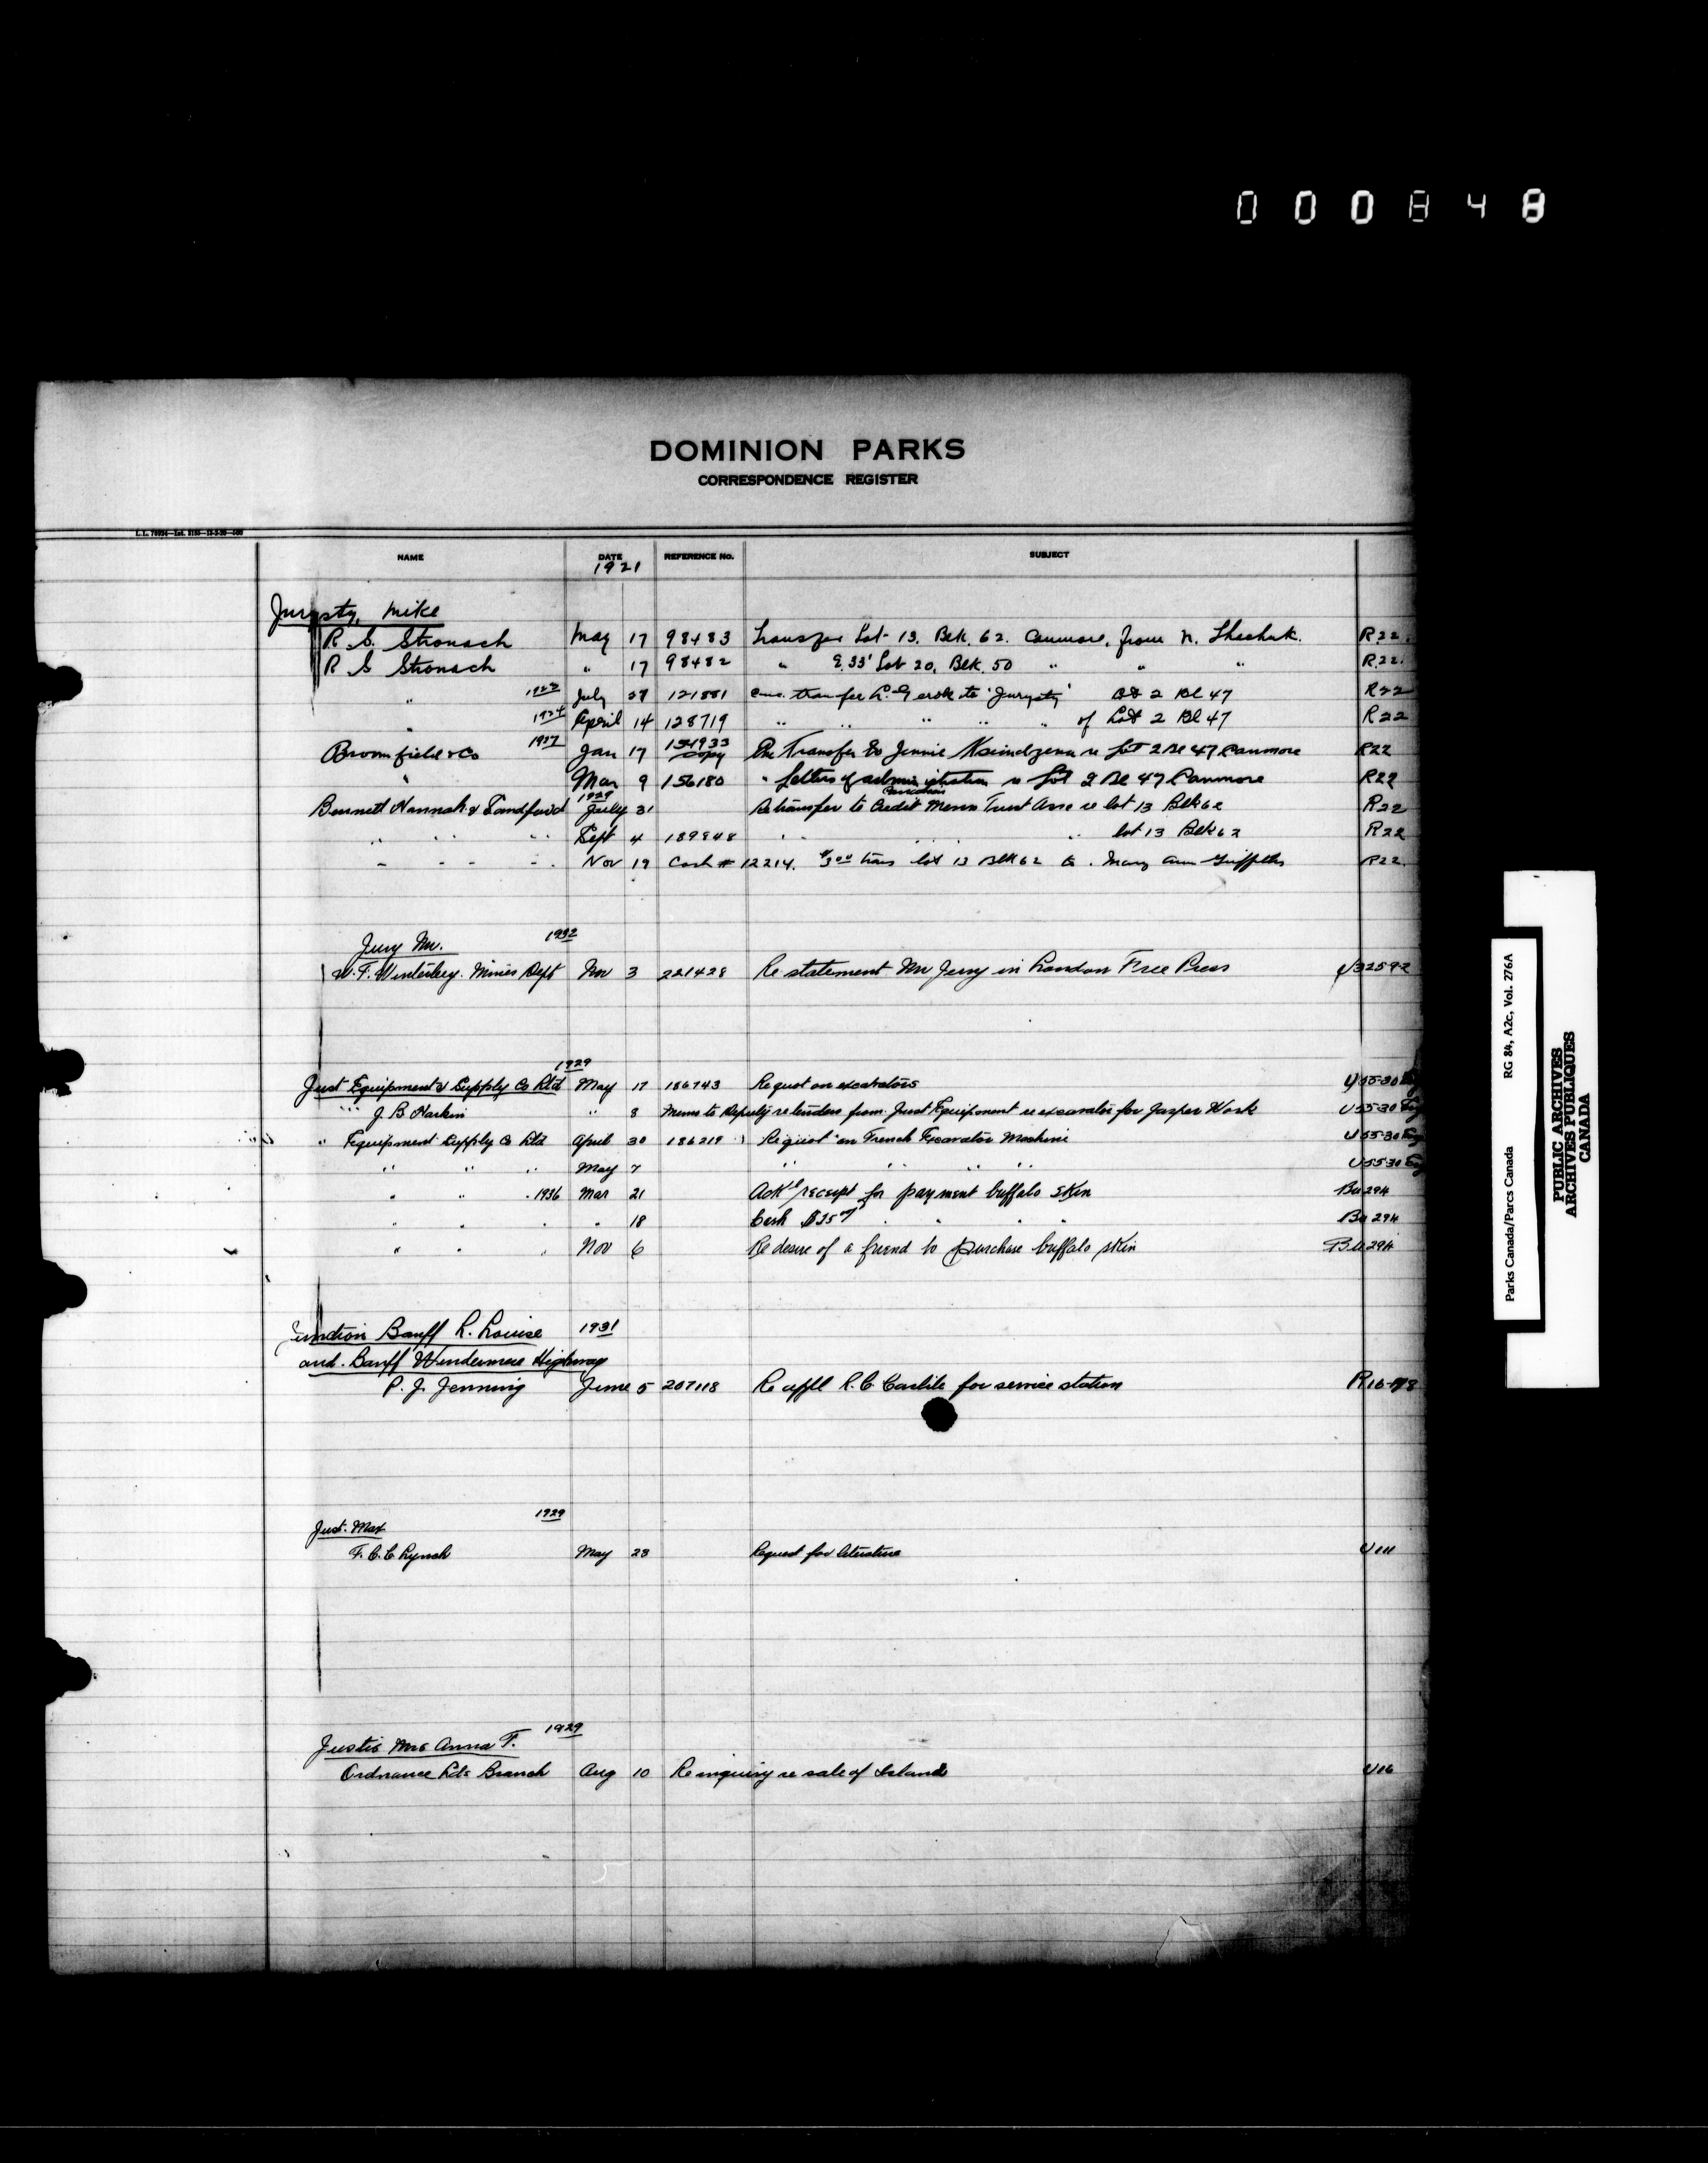 000848
DOMINION PARKS
CORRESPONDENCE REGISTER
NAME DATE REFERENCE No. SUBJECT
1921
Jurysty, Mike
R. S. Stronach May 17 98483 Transfer Lot 13. Blk. 62. Canmore, from N. R.22.
R S Stronach " 17 98482 " E.33' Lot 20, Blk. 50 " " " R.22.
" July 27 121881 transfer to 'Jurysty' 2 Bl 47 R22
" 1924 April 14 128719 " " " " " of Lot 2 Bl 47 R22
Broomfield & Co 1927 Jan 17 154933 copy Re Transfer to Jennie re Lot 2 Bl 47 Canmore R22
" Mar 9 156180 " Letters of administration re Lot 2 Bl 47 Canmore R22
1929
Bennett Hannah & Sandford July 31 Re transfer to Credit Mens Trust Assc re lot 13 Blk 62 R22
" " " Sept 4 189848 " " " lot 13 Blk 62 R22
" " " " Nov 19 Cash # 12214. $3.00 trans lot 13 Blk 62 to Mary Ann Griffiths R22.
Jury Mr. 1932
W. F. Mines Dept Nov 3 221428 Re statement Mr Jury in London Free Press U325-92
1929
Just Equipment & Supply Co Ltd May 17 186743 Request on excavators U55-30
" J. B. Harkin " 8 Memo to Deputy re tenders from Just Equipment re excavator for Jasper Work U55-30
" Equipment Supply Co Ltd April 30 186219 Request on French Excavator Machine U55-30
" " " May 7 " " " " U55-30
" " " 1936 Mar 21 receipt for payment buffalo skin Bu294
" " " " 18 Cash " " " " Bu294
" " " Nov 6 Re desire of a friend to purchase buffalo skin Bu294
Junction Banff L. Louise 1931
and Banff Windermere Highway
P. J. Jenning June 5 207118 Re appl R. C. Carlile for service station R16-
1929
Just. Max
F. C. C. Lynch May 23 Request for literature U111
Justis Mrs Anna F. 1929
Ordnance Lds Branch Aug 10 Re inquiry re sale of Islands U16
RG 84, A2c, Vol. 276A
Parks Canada/Parcs Canada
PUBLIC ARCHIVES
ARCHIVES PUBLIQUES
CANADA